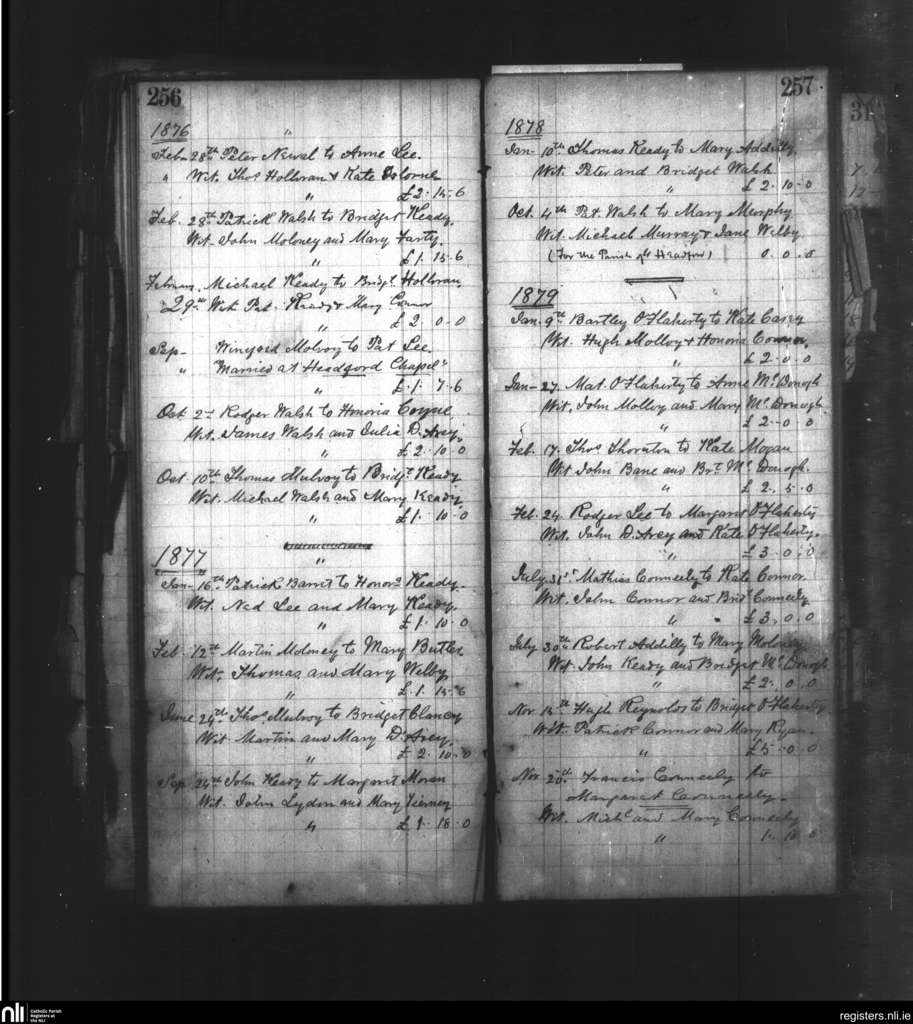 256
1876
"
Feb- 28th Peter Newel to Anne Lee.
" Wit. Thos Holloran & Kate
" £2. 15. 6
Feb. 28th Patrick Walsh to Bridget Keady.
Wit. John Moloney and Mary Farty.
" £1. 15. 6
Michael Keady to Bridgt Holloran
29th Wit Pat. Keady & Mary Connor
" £2 0. 0
Sep- Winefred Molroy to Pat Lee.
" "Married at Headford Chapel"
" £.1. 7. 6
Oct 2nd Rodger Walsh to Honoria Coyne
Wit. James Walsh and Julia D'Arcy.
" £2. 10. 0
Oct. 10th Thomas Mulroy to Bridgt Keady
Wit. Michael Walsh and Mary Keady.
" £1. 10. 0
1877
"
Jan- 16th Patrick Barret to Honora Keady.
Wit. Ned Lee and Mary Keady.
" £1. 10. 0
Feb. 12th Martin Moloney to Mary Butler
Wit. Thomas and Mary Welby
" £.1. 15. 6
June 24th Thos Mulroy to Bridget Clancy
Wit Martin and Mary D'Arcy.
" £2. 10. 0
Sep. 24th John Keady to Margaret Moran
Wit. John Lydon and Mary Tierney
" £1. 18. 0
257
1878
Jan- 10th Thomas Keady to Mary Addilly
Wit. Peter and Bridget Walsh
" £2. 10. 0
Oct. 4th Pat. Walsh to Mary Murphy
Wit. Michael Murray & Jane Welby.
(For the Parish of Headford) 0. 0. 0
1879
Jan. 9th Bartley O'Flaherty to Kate Casey
Wt. Hugh Molloy & Honoria Connor,
£2. 0. 0
Jan- 27. Mat. O'Flaherty to Anne McDonogh
Wit. John Molloy and Mary McDonogh
" £2. 0. 0
Feb. 17. Thos Thornton to Kate Mogan
Wit John Bane and Brt McDonogh.
" £2. 5. 0
Feb. 24. Rodger Lee to Margaret O'Flaherty
Wit. John D'Arcy and Kate O'Flaherty.
" £3. 0. 0
July 31st Mathias Conneely to Kate Connor
Wit. John Connor and Bridt Conneely
" £3. 0. 0
July 30th Robert Addilly to Mary Moloney
Wit John Keady and Bridget McDonogh
" £2. 0. 0
Nov. 15th Hugh Reynolds to Bridget O'Flaherty
Wit. Patrick Connor and Mary Ryan.
" £5. 0. 0
Nov. 20th Francis Conneely to
Margaret Conneely.
Wit. Michl and Mary Conneely
" 1. 10. 0
nli
Catholic Parish
Registers at
the NLI
registers.nli.ie